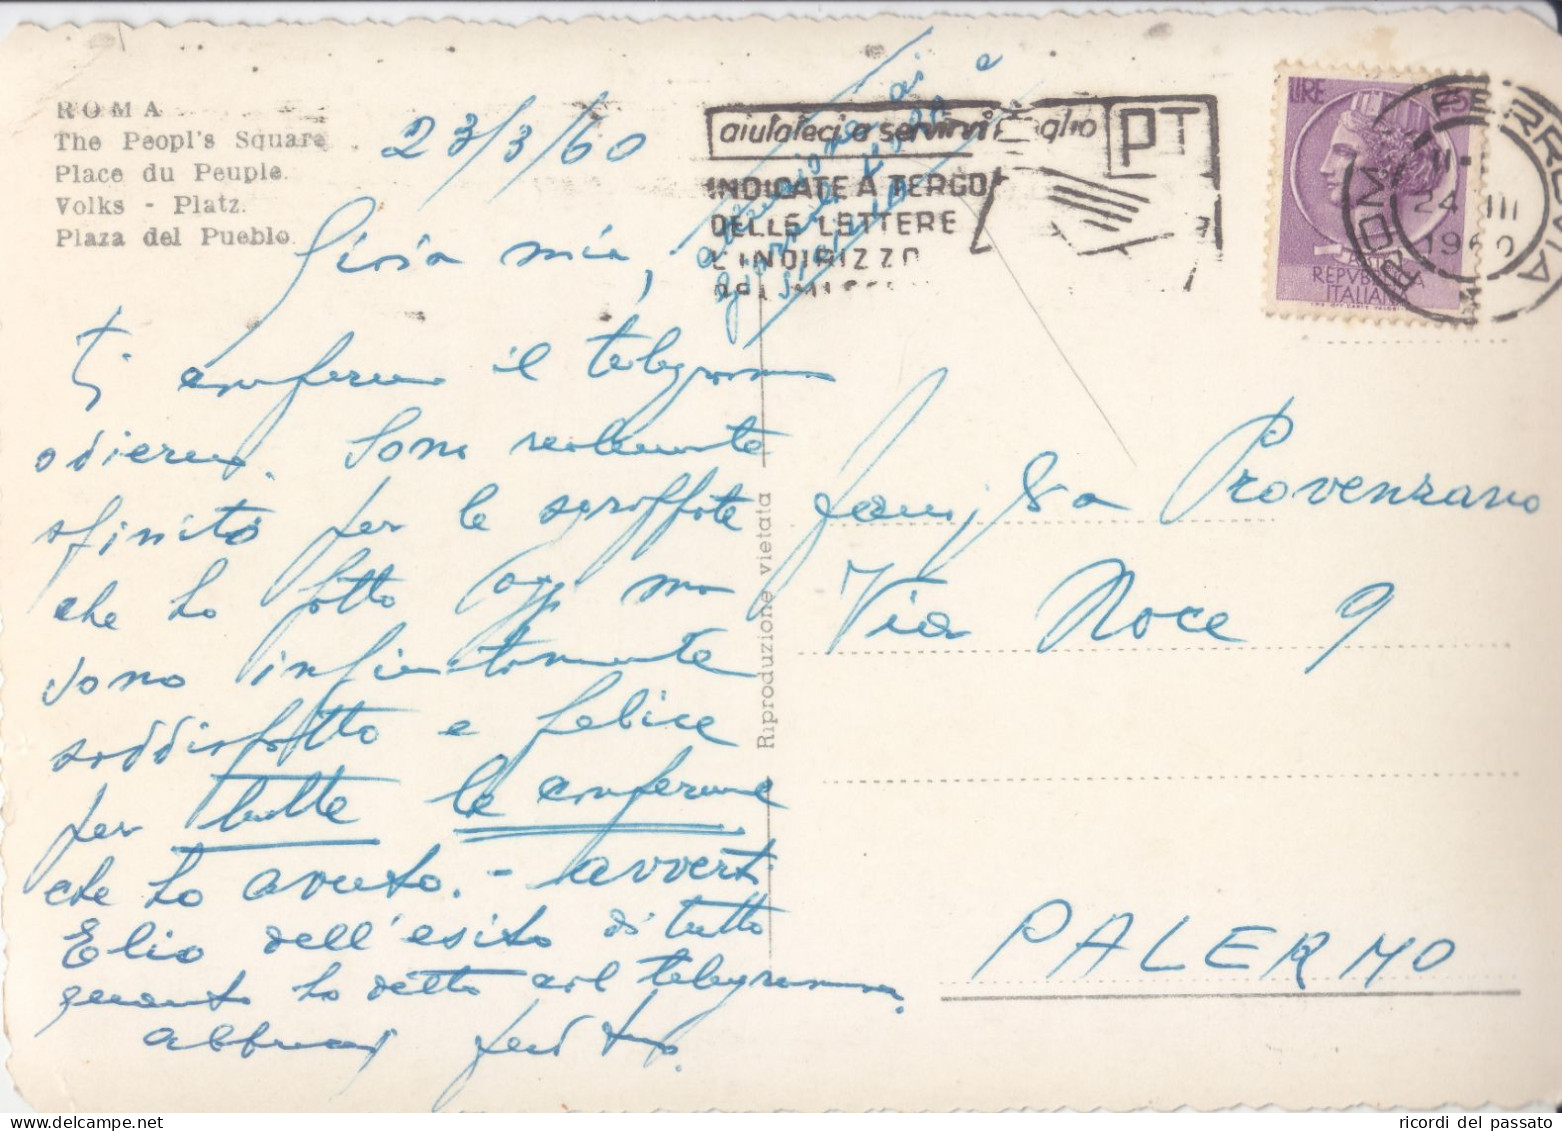 ROMA
The Peopl's Square
Place du Peuple.
Volks - Platz.
Plaza del Pueblo.
23/3/60
aiutateci a servirvi meglio
PT
INDICATE A TERGO
DELLE LETTERE
L'INDIRIZZO
DEL
LIRE 25
REPVBBLICA
ITALIANA
ROMA FERROVIA
24 III
1960
Gioia mia,
Ti confermo il telegramma
odierno. Sono realmente
sfinito per le sgroppate
che ho fatto oggi ma
sono infinitamente
soddisfatto e felice
per tutte le conferme
che ho avuto. - avverti
Elio dell'esito di tutto
quanto ho detto col telegramma.
abbracci
Riproduzione vietata
Famiglia Provenzano
Via Noce 9
PALERMO
ricordi del passato